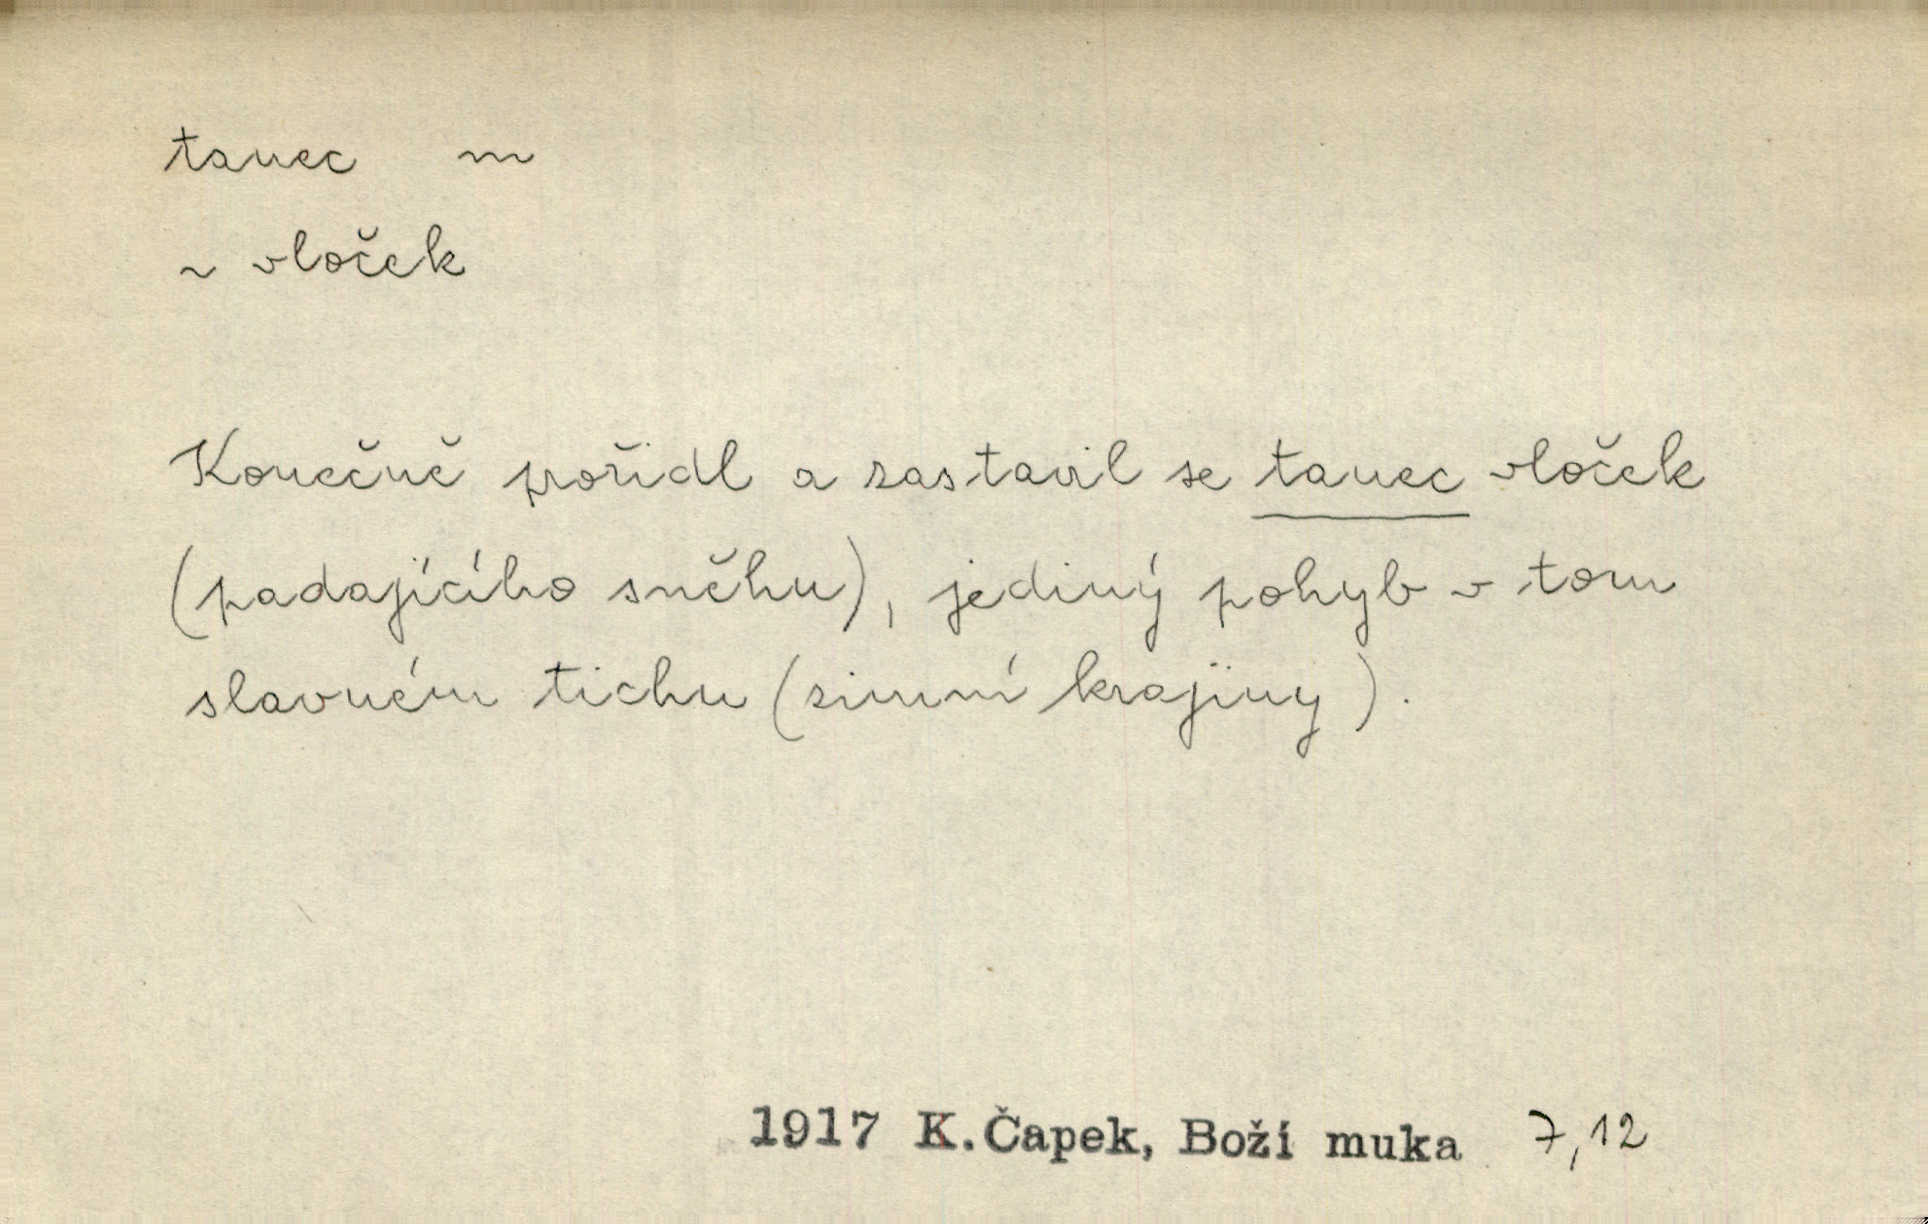 tanec m
~ vloček
Konečně pořidl a zastavil se tanec vloček
(padajícího sněhu), jediný pohyb v tom
slavném tichu (zimní krajiny).
1917 K. Čapek, Boží muka 7,12